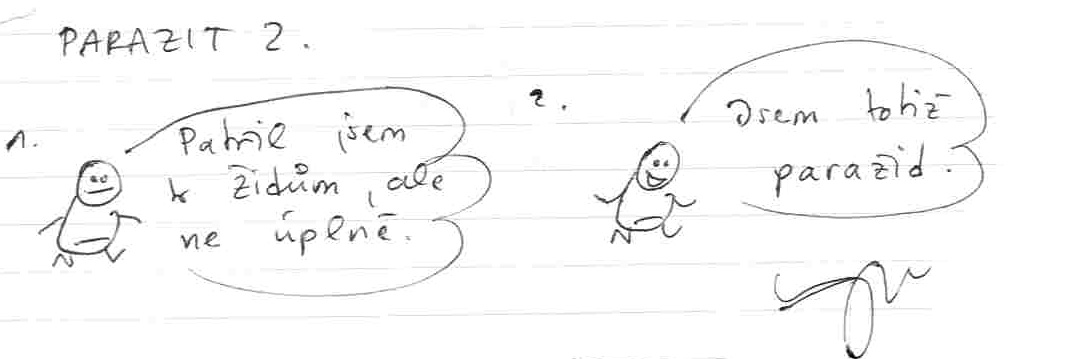 PARAZIT 2.
1.
Patřil jsem
k židům, ale
ne úplně.
2.
Jsem totiž
paražid.